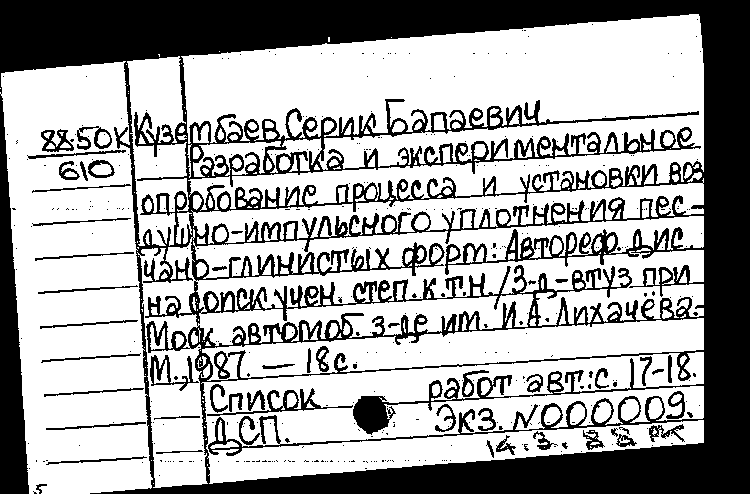 88.50К Кузембаев, Серик Бапаевич.
610 Разработка и экспериментальное
опробование процесса и установки воз
душно-импульсного уплотнения пес-
чано-глинистых форм: Автореф. дис.
на сопск. учен. степ. к.т.н. /З-д-втуз при
Моск. автомоб. з-де им. И.А. Лихачёва.-
М., 1987. — 18с.
Список работ авт.: с. 17-18.
ДСП. Экз. N000009.
14.3.88 РК
5